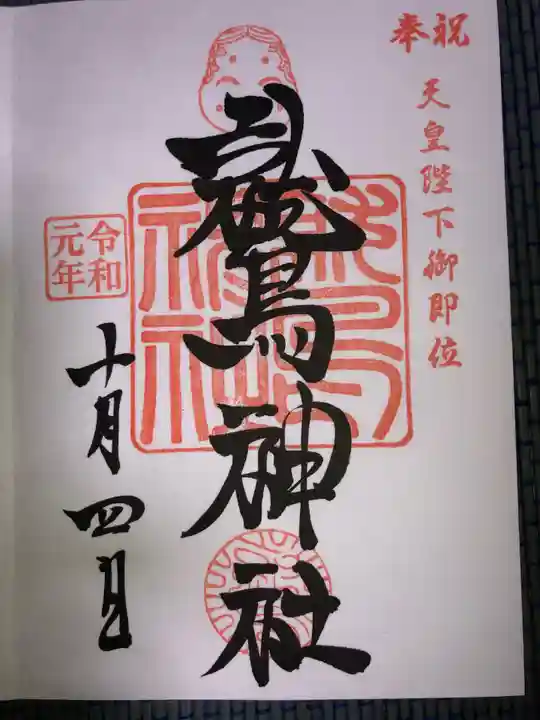 奉祝
天皇陛下御即位
鷲神社
令和
元年
十月四日